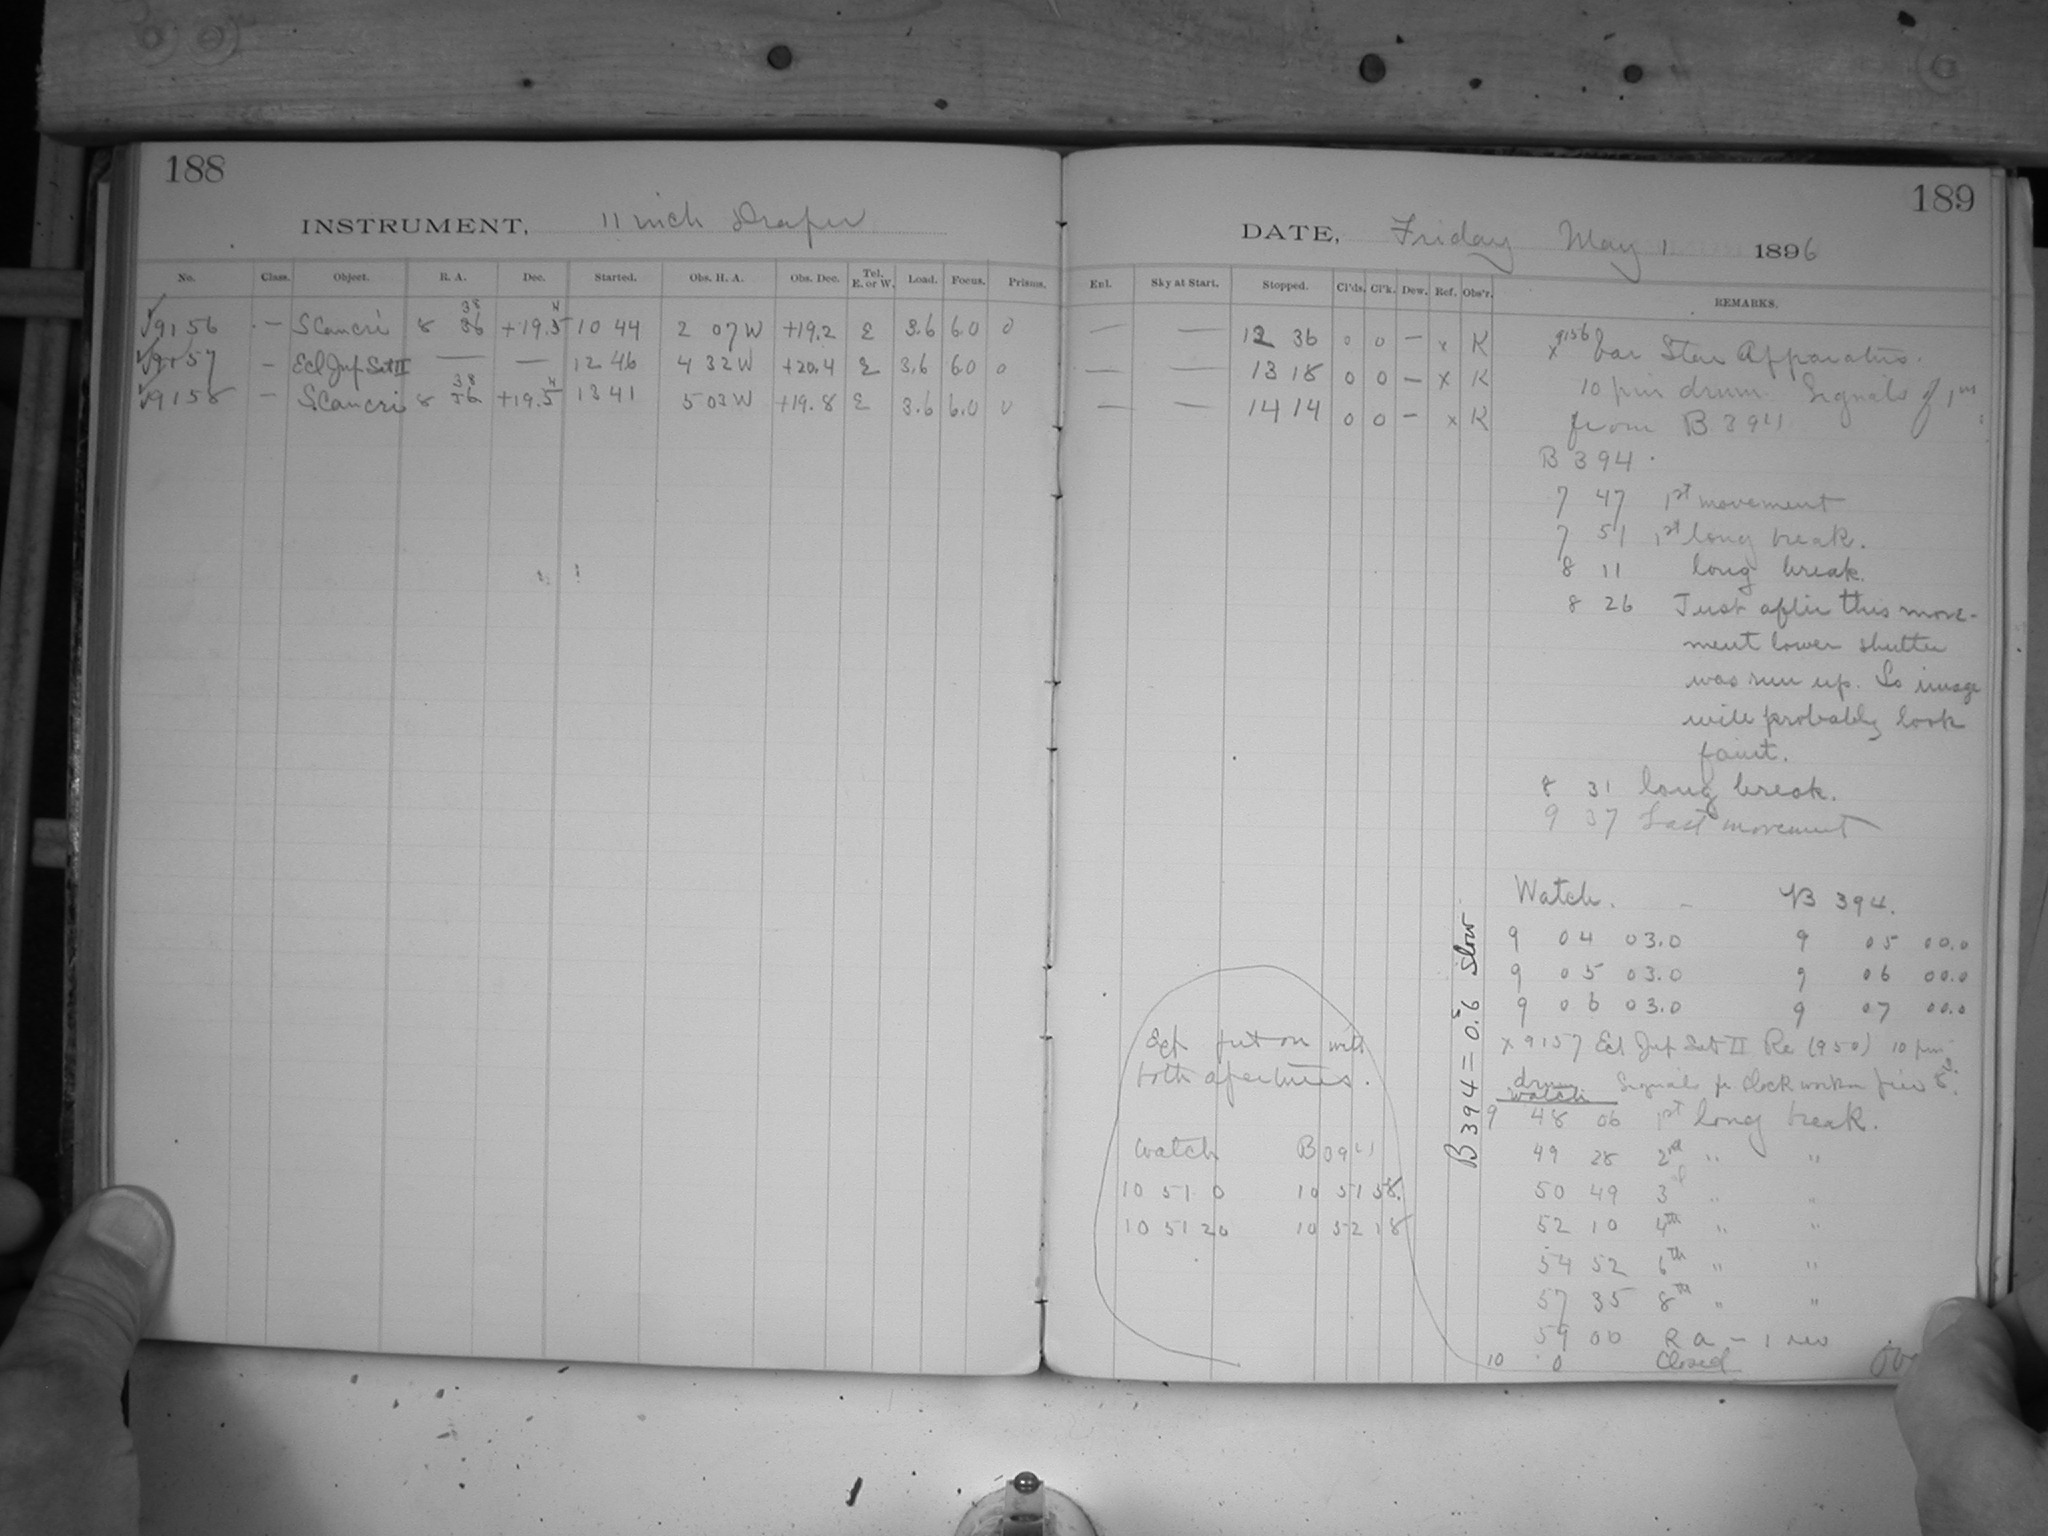 188
INSTRUMENT, 11 inch Draper
No. Class. Object. R. A. Dec. Started. Obs. H. A. Obs. Dec. Tel. E. or W. Load. Focus. Prisms.
38 4
9156 — S Cancri 8 36 +19.5 10 44 2 07 W +19.2 E 3.6 6.0 0
9157 — Ecl Jup Sat II — — 12 46 4 32 W +20.4 E 3.6 6.0 0
38 4
9158 — S Cancri 8 36 +19.5 13 41 5 03 W +19.8 E 3.6 6.0 0
189
DATE, Friday May 1 1896
Enl. Sky at Start. Stopped. Cl'ds. Cl'k. Dew. Ref. Obs'r. REMARKS.
— — 12 36 0 0 — x K
— — 13 18 0 0 — x K
— — 14 14 0 0 — x K
x 9156 Var Star Apparatus.
10 pin drum Signals of 1m
from B 394
B 394.
7 47 1st movement
7 51 1st long break.
8 11 long break.
8 26 Just after this move-
ment lower shutter
was run up. So image
will probably look
faint.
8 31 long break.
9 37 Last movement
Watch. — B 394.
9 04 03.0 9 05 00.0
9 05 03.0 9 06 00.0
9 06 03.0 9 07 00.0
B 394 = 0.6s slow
x 9157 Ecl Jup Sat II Re (950) 10 pin
drum Signals fr clock work on pier 8s.
watch
9 48 06 1st long break.
49 28 2nd " "
50 49 3d " "
52 10 4th " "
54 52 6th " "
57 35 8th " "
59 00 R a — 1 rev
10 0 Closed
Exp put on with
both apertures.
Watch B 394
10 51 0 10 51 58.
10 51 20 10 52 18